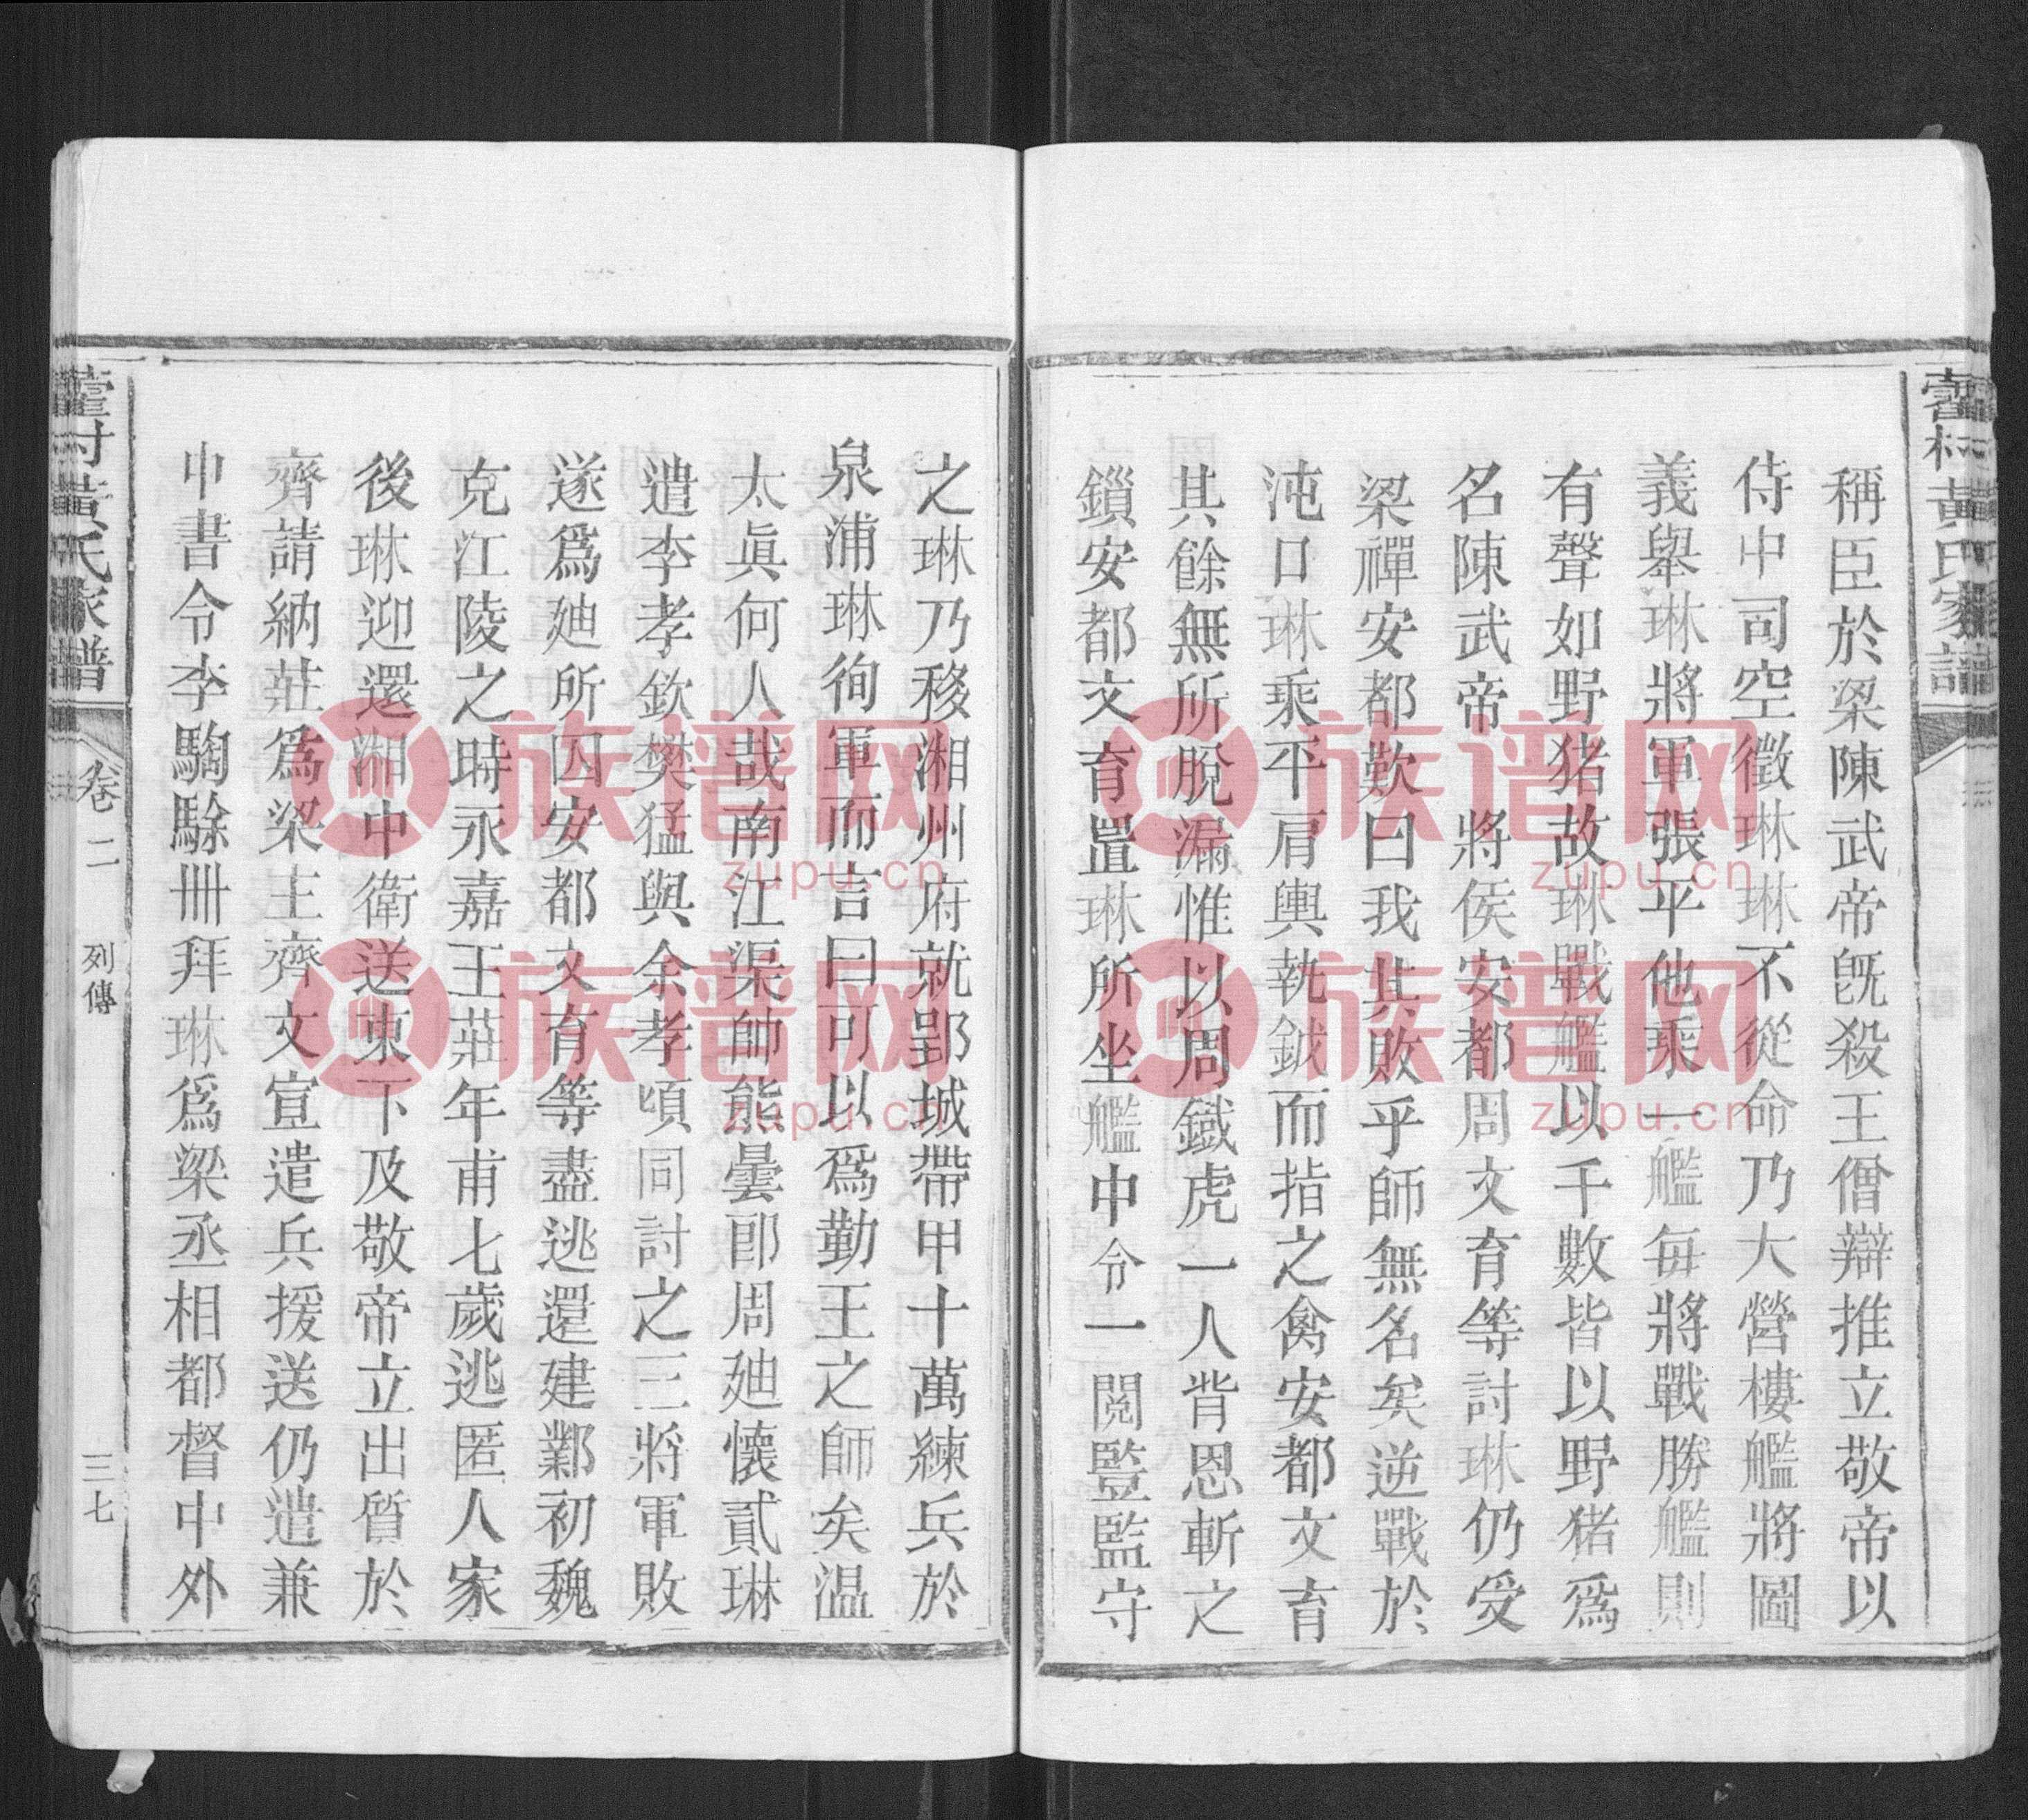 稱臣於梁陳武帝旣殺王僧辯推立敬帝以
侍中司空徵琳琳不從命乃大營樓艦將圖
義舉琳將軍張平他乘一艦每將戰勝艦則
有聲如野猪故琳戰艦以千數皆以野猪爲
名陳武帝 將侯安都周文育等討琳仍受
梁禪安都歎曰我其敗乎師無名矣逆戰於
沌口琳乘平肩輿執鉞而指之禽安都文育
其餘無所脫漏惟以周鐵虎一人背恩斬之
鎖安都文育置琳所坐艦中令一閹豎監守
之琳乃移湘州府就郢城帶甲十萬練兵於
泉浦琳徇軍而言曰可以爲勤王之師矣温
太眞何人哉南江渠帥熊曇郎周廸懷貳琳
遣李孝欽樊猛與余孝頃同討之三將軍敗
遂爲廸所囚安都文育等盡逃還建鄴初魏
克江陵之時永嘉王莊年甫七歲逃匿人家
後琳迎還湘中衛送東下及敬帝立出質於
齊請納莊爲梁主齊文宣遣兵援送仍遣兼
中書令李騊駼冊拜琳爲梁丞相都督中外
黃氏家譜
卷二
列傳
三七
族谱网
zupu.cn
族谱网
zupu.cn
族谱网
zupu.cn
族谱网
zupu.cn